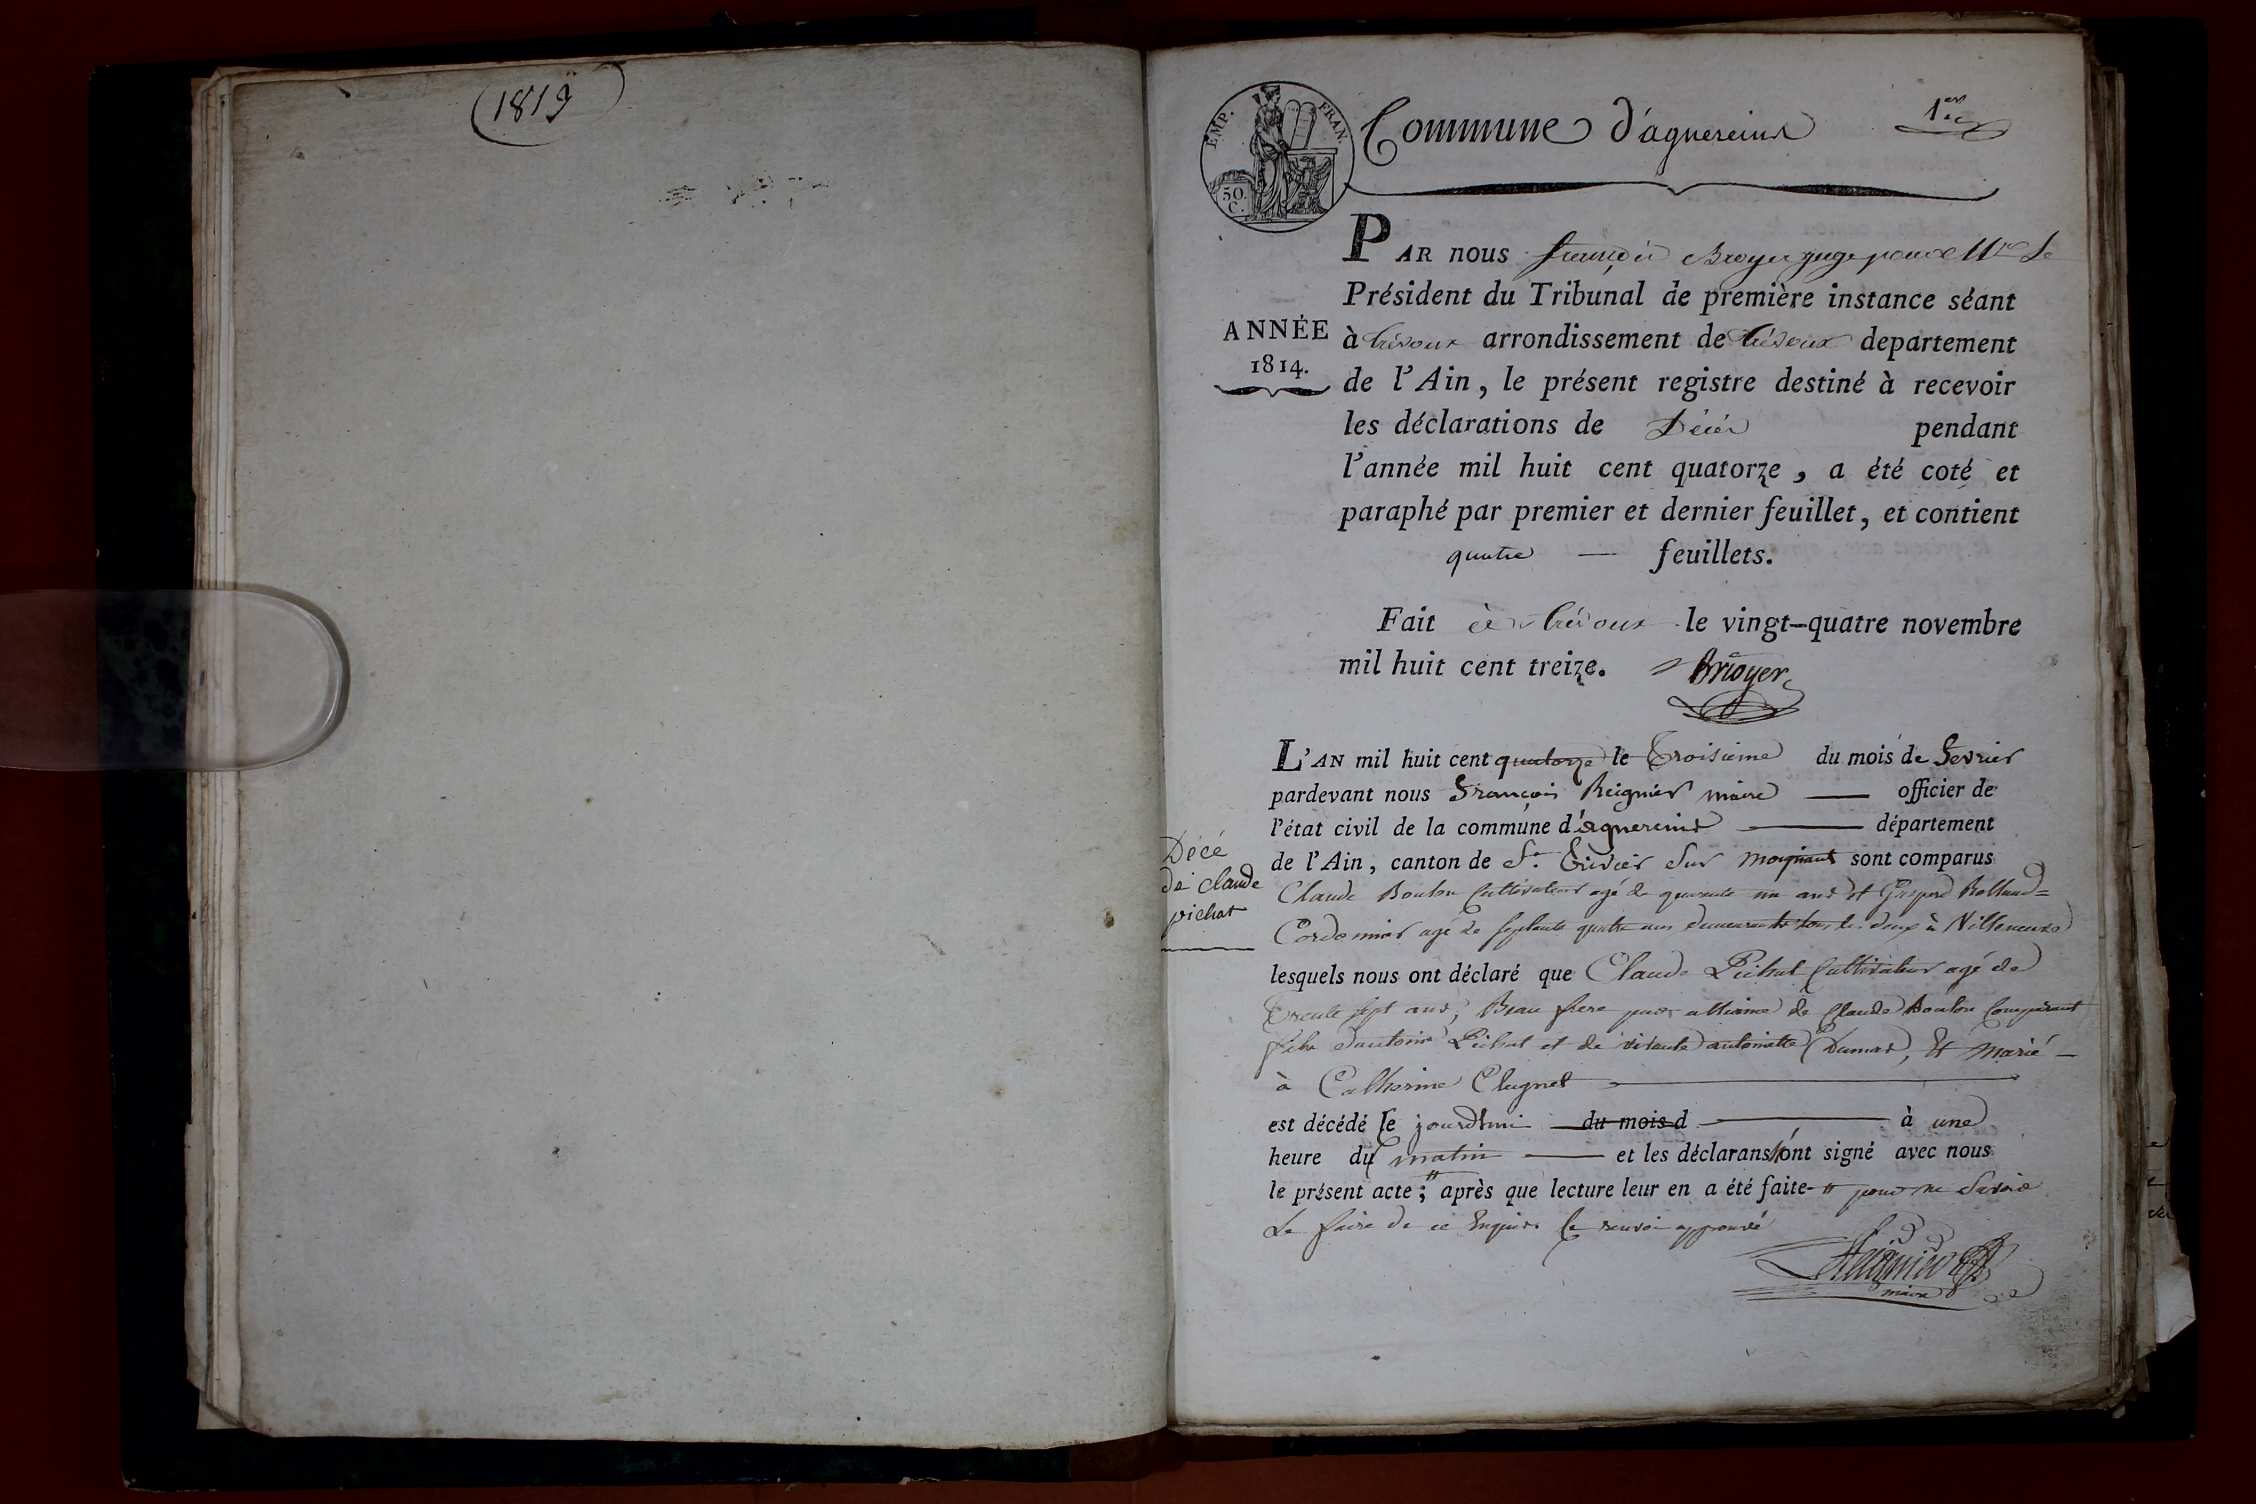 1819
EMP. FRAN.
50.
C.
Commune d'agnereins
1er
PAR nous françois Broyer juge pour Mr Le
Président du Tribunal de première instance séant
à trévoux arrondissement de trévoux departement
de l'Ain, le présent registre destiné à recevoir
les déclarations de Décès pendant
l'année mil huit cent quatorze, a été coté et
paraphé par premier et dernier feuillet, et contient
quatre — feuillets.
ANNÉE
1814.
Fait à trévoux le vingt-quatre novembre
mil huit cent treize. Broyer
L'AN mil huit cent quatorze le Troisieme du mois de fevrier
pardevant nous François Reignier maire — officier de
l'état civil de la commune d'agnereins — département
de l'Ain, canton de St. Trivier sur moignans sont comparus
Décé
de claude
pichat
Claude Boulon Cultivateur agé de quarante un ans et Gaspard Rolland=
Cordonnier agé de septante quatre ans demeurants tous les deux à Villeneuve
lesquels nous ont déclaré que Claude Pichat Cultivateur agé de
Trente sept ans, Beau frere par alliance de Claude Boulon Comparant
fils d'antoine Pichat et de vivante antoinette Dumas, Et Marié —
à Catherine Clugnet
est décédé le jourdhui du mois d à une
heure du matin — et les déclarans n'ont signé avec nous
le présent acte; " après que lecture leur en a été faite- " pour ne savoir
Le faire de ce Enquis. le renvoi approuvé
Reignier
maire